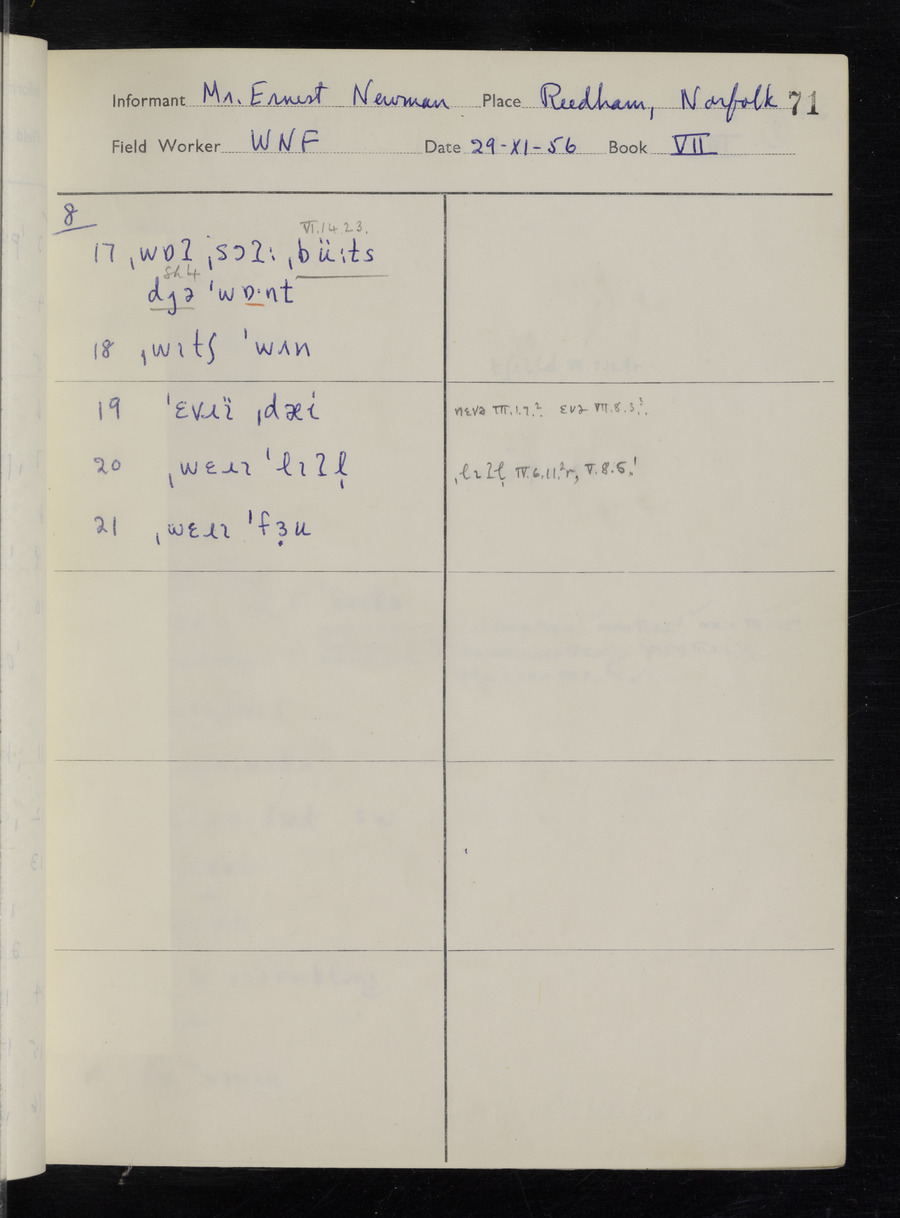 Informant Mr. Ernest Newman Place Reedham, Norfolk 71
Field Worker WNF Date 29-XI-56 Book VII
8
VI.14.23.
17 ˌwɒʔ ˌsɔʔː ˌbüːts
Sh 4
djə ˈwɒ·nt
18 ˌwɪtʃ ˈwʌn
19 ˈɛvɹɪ̈ ˌdæi nɛvə VII.1.7.² ɛvə VII.8.3.³
20 ˌwɛɹɪ ˈlɪʔl̩ ˌlɪʔl̩ IV.6.11.²r, V.8.5.¹
21 ˌwɛɹɪ ˈfɜ̣u